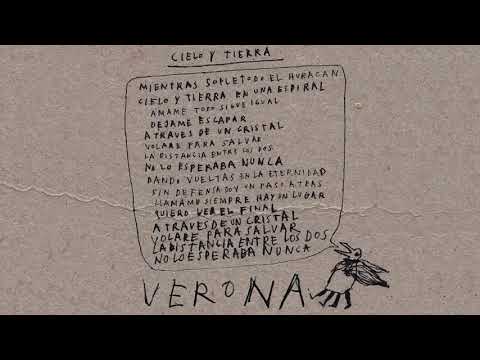 CIELO Y TIERRA
MIENTRAS SOPLE TODO EL HURACAN
CIELO Y TIERRA EN UNA ESPIRAL
AMAME TODO SIGUE IGUAL
DEJAME ESCAPAR
A TRAVES DE UN CRISTAL
VOLARE PARA SALVAR
LA DISTANCIA ENTRE LOS DOS
NO LO ESPERABA NUNCA
DANDO VUELTAS EN LA ETERNIDAD
SIN DEFENSA DOY UN PASO ATRAS
LLAMAME SIEMPRE HAY UN LUGAR
QUIERO VER EL FINAL
A TRAVES DE UN CRISTAL
VOLARE PARA SALVAR
LA DISTANCIA ENTRE LOS DOS
NO LO ESPERABA NUNCA
VERONA